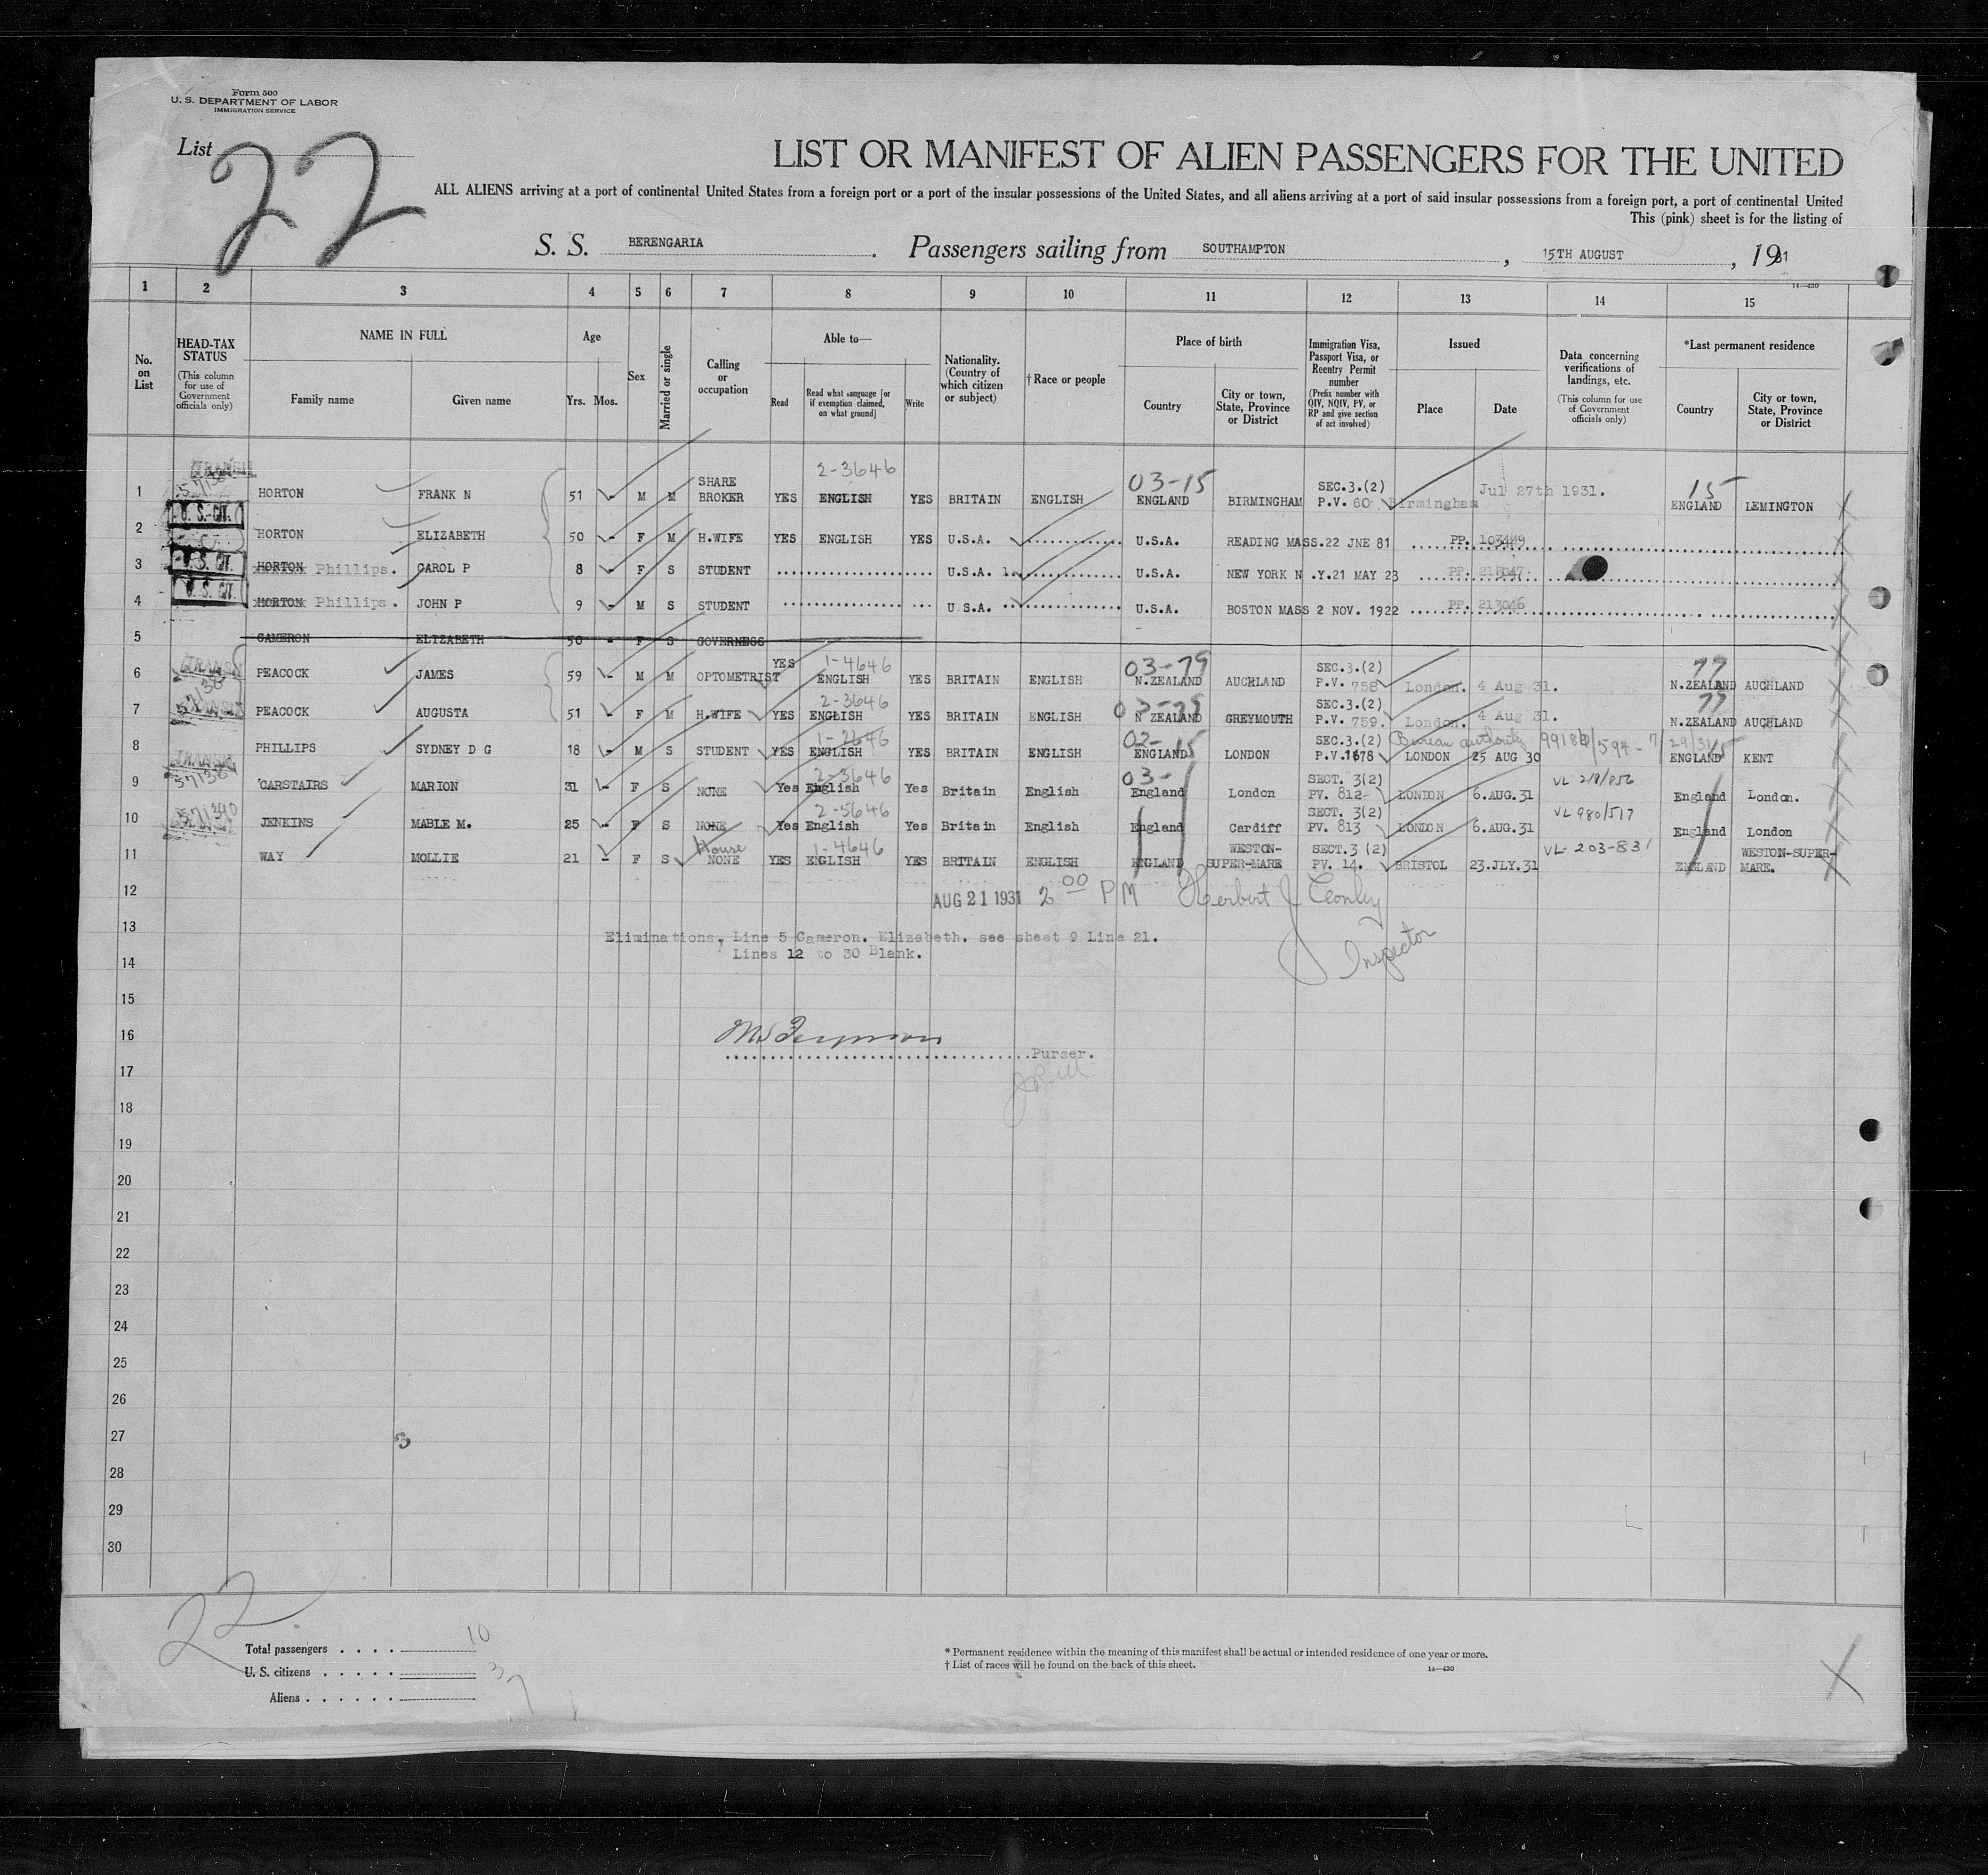 Form 500
U. S. DEPARTMENT OF LABOR
IMMIGRATION SERVICE
List 22
LIST OR MANIFEST OF ALIEN PASSENGERS FOR THE UNITED
ALL ALIENS arriving at a port of continental United States from a foreign port or a port of the insular possessions of the United States, and all aliens arriving at a port of said insular possessions from a foreign port, a port of continental United
This (pink) sheet is for the listing of
S. S. BERENGARIA. Passengers sailing from SOUTHAMPTON, 15TH AUGUST, 1931
14—430
1 2 3 4 5 6 7 8 9 10 11 12 13 14 15
No. on List
HEAD-TAX STATUS (This column for use of Government officials only)
NAME IN FULL
Family name
Given name
Age
Yrs. Mos.
Sex
Married or single
Calling or occupation
Able to—
Read
Read what language [or if exemption claimed, on what ground]
Write
Nationality. (Country of which citizen or subject)
† Race or people
Place of birth
Country
City or town, State, Province or District
Immigration Visa, Passport Visa, or Reentry Permit number (Prefix number with QIV, NQIV, PV, or RP and give section of act involved)
Issued
Place
Date
Data concerning verifications of landings, etc. (This column for use of Government officials only)
*Last permanent residence
Country
City or town, State, Province or District
2-3646
1 HORTON FRANK N 51 - M M SHARE BROKER YES ENGLISH YES BRITAIN ENGLISH 03-15 ENGLAND BIRMINGHAM SEC.3.(2) P.V. 60 Birmingham Jul 27th 1931. 15 ENGLAND LEMINGTON
2 U. S. CIT. HORTON ELIZABETH 50 - F M H.WIFE YES ENGLISH YES U.S.A. U.S.A. READING MASS.22 JNE 81 PP. 103449
3 U. S. CIT. HORTON Phillips. CAROL P 8 - F S STUDENT U.S.A. U.S.A. NEW YORK N.Y.21 MAY 23 PP. 213047
4 U. S. CIT. HORTON Phillips. JOHN P 9 - M S STUDENT U.S.A. U.S.A. BOSTON MASS 2 NOV. 1922 PP. 213046
5 CAMERON ELIZABETH 50 - F S GOVERNESS
6 PEACOCK JAMES 59 - M M OPTOMETRIST YES 1-4646 ENGLISH YES BRITAIN ENGLISH 03-79 N.ZEALAND AUCHLAND SEC.3.(2) P.V. 758 London. 4 Aug 31. 77 N.ZEALAND AUCHLAND
7 PEACOCK AUGUSTA 51 - F M H.WIFE YES 2-3646 ENGLISH YES BRITAIN ENGLISH N ZEALAND GREYMOUTH SEC.3.(2) P.V. 759. London. 4 Aug 31. 77 N.ZEALAND AUCHLAND
8 PHILLIPS SYDNEY D G 18 - M S STUDENT YES 1-2646 ENGLISH YES BRITAIN ENGLISH 02-15 ENGLAND LONDON SEC.3.(2) P.V.1678 Bureau authority LONDON 25 AUG 30 15 ENGLAND KENT
9 CARSTAIRS MARION 31 - F S NONE Yes 2-3646 English Yes Britain English 03- England London SECT. 3(2) PV. 812 LONDON 6.AUG.31 England London.
10 JENKINS MABLE M. 25 - F S NONE Yes 2-5646 English Yes Britain English England Cardiff SECT. 3(2) PV. 813 LONDON 6.AUG.31 VL 980/517 England London
11 WAY MOLLIE 21 - F S House NONE YES 1-4646 ENGLISH YES BRITAIN ENGLISH ENGLAND WESTON-SUPER-MARE SECT.3 (2) PV. 14. BRISTOL 23.JLY.31 VL-203-831 ENGLAND WESTON-SUPER-MARE.
12 AUG 21 1931 2 00 PM Herbert J Conley
13 Eliminations, Line 5 Cameron. Elizabeth. see sheet 9 Line 21.
Inspector
14 Lines 12 to 30 Blank.
15
16
Purser.
17
18
19
20
21
22
23
24
25
26
27 3
28
29
30
22
Total passengers . . . . 10
U. S. citizens . . . . . 3
Aliens . . . . . . 7
* Permanent residence within the meaning of this manifest shall be actual or intended residence of one year or more.
† List of races will be found on the back of this sheet.
14—430